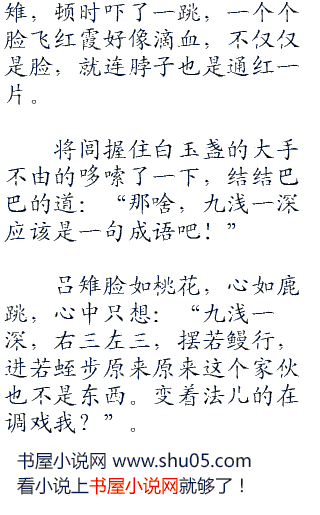 雉，顿时吓了一跳，一个个
脸飞红霞好像滴血，不仅仅
是脸，就连脖子也是通红一
片。
将闾握住白玉盏的大手
不由的哆嗦了一下，结结巴
巴的道：“那啥，九浅一深
应该是一句成语吧！”
吕雉脸如桃花，心如鹿
跳，心中只想：“九浅一
深，右三左三，摆若鳗行，
进若蛭步原来原来这个家伙
也不是东西。变着法儿的在
调戏我？”。
书屋小说网 www.shu05.com
看小说上书屋小说网就够了！